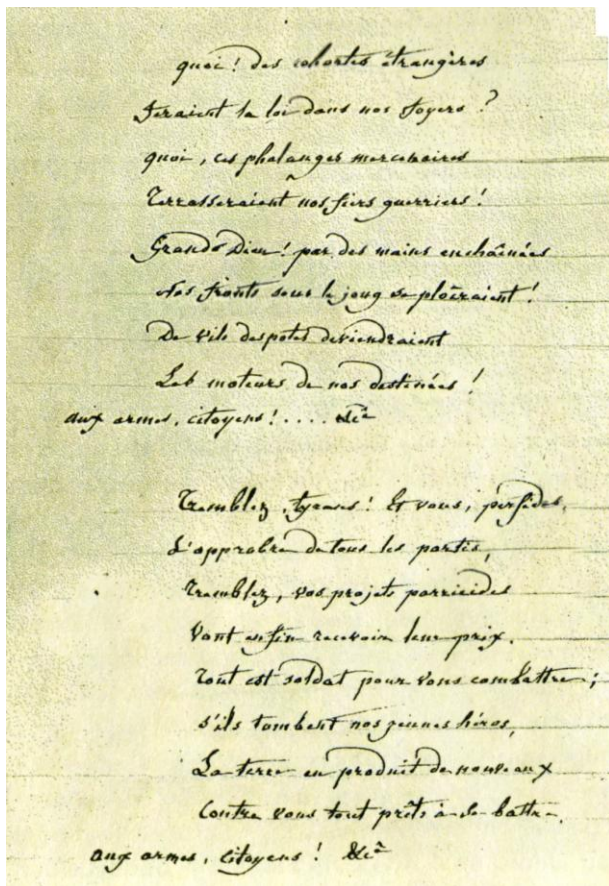 quoi! des cohortes étrangères
Feraient la loi dans nos foyers?
quoi, ces phalanges mercenaires
Terrasseraient nos fiers guerriers!
Grands Dieu! par des mains enchaînées
Nos fronts sous le joug se ploîraient!
De vils despotes deviendraient
Les moteurs de nos destinées!
aux armes, citoyens!.... &c
Tremblez, tyrans! Et vous, perfides,
L'opprobre de tous les partis,
Tremblez, vos projets parricides
Vont enfin recevoir leur prix.
Tout est soldat pour vous combattre;
s'ils tombent nos jeunes héros,
La terre en produit de nouveaux
Contre vous tout prêts à se battre.
aux armes, citoyens! &c